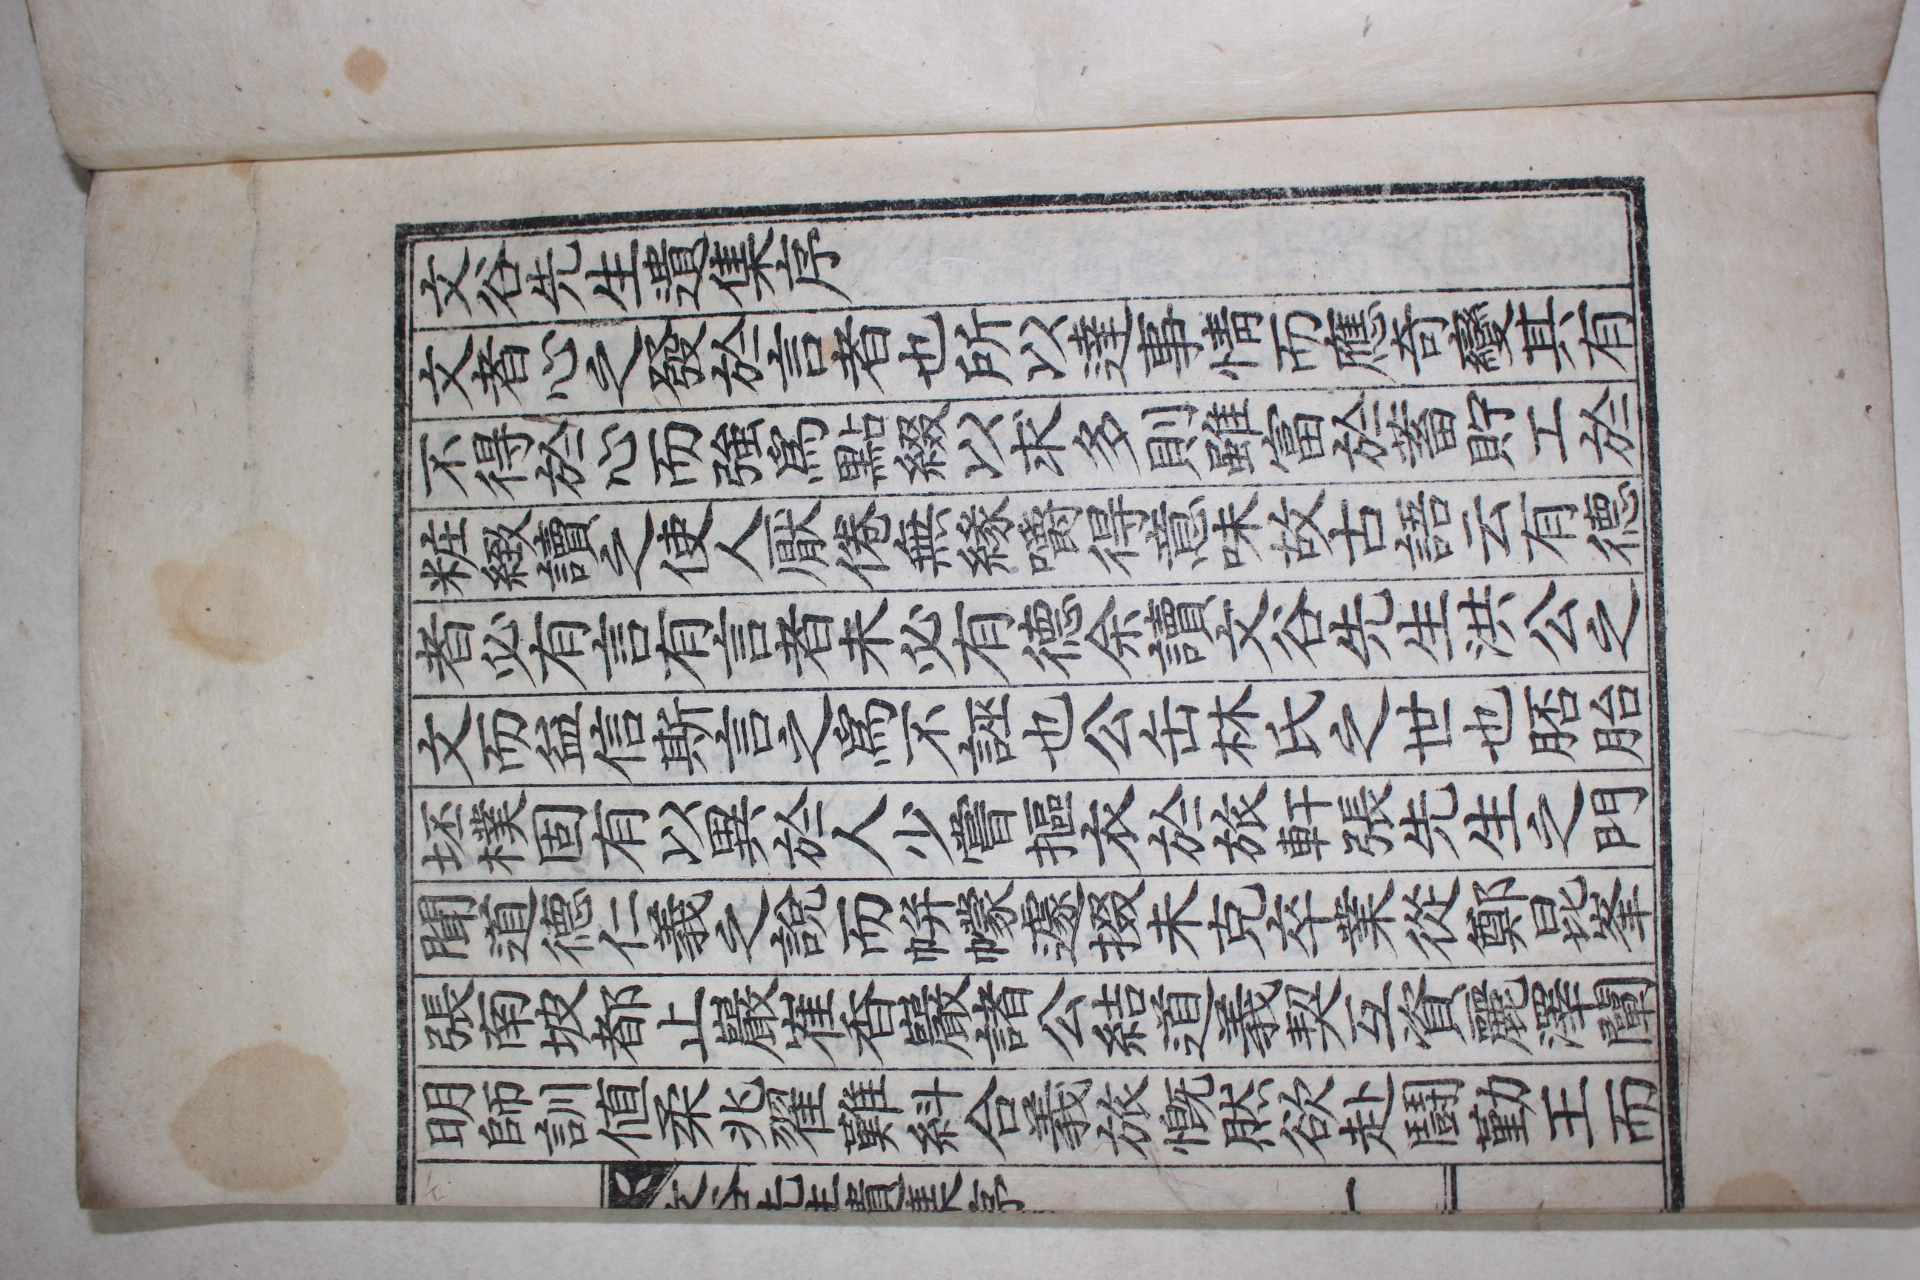 文谷先生遺集序
文者心之發於言者也所以達事情而應奇變其有
不得於心而強爲點綴以求多則雖富於蓄貯工於
粧綴讀之使人厭倦無緣嚼得意味故古語云有德
者必有言有言者未必有德余讀文谷先生洪公之
文而益信斯言之爲不誣也公岳林氏之世也胚胎
坯樸固有以異於人少嘗摳衣於旅軒張先生之門
聞道德仁義之說而帡幪遽掇未克卒業從鄭昆峯
張南坡都止巖崔杳巖諸公結道義契互資麗澤闡
明師訓值柔兆獾難糾合義旅慨然欲赴鬪勤王而
文谷先生遺集序 一